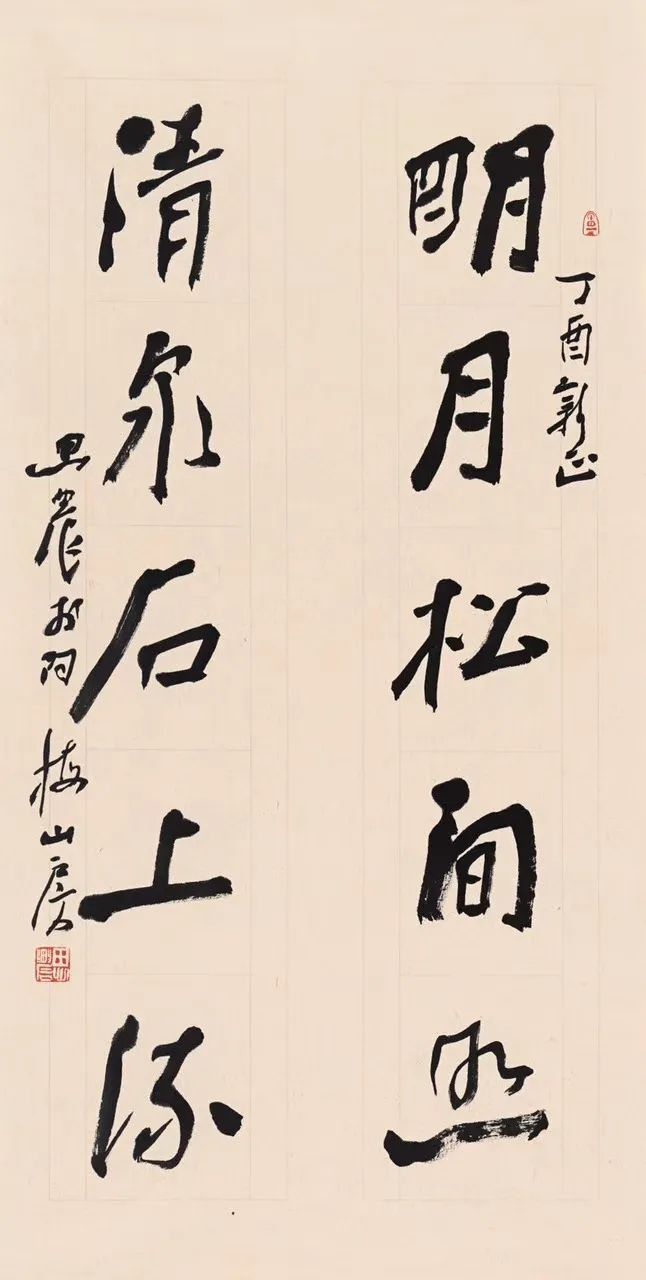 明月松间照
丁酉新正
清泉石上流
思农于问梅山房